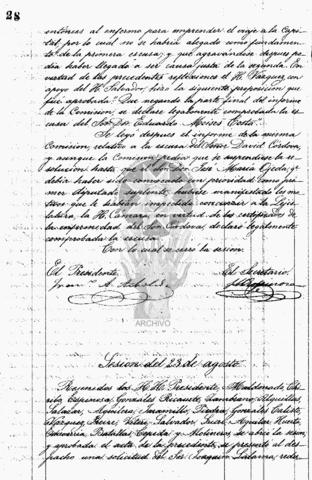 28
entónces al enfermo para emprender el viaje a la Capi-
tal por lo cual no se habria alegado como fundamen-
to de la primera escusa; y que agravándose despues po-
dia haber llegado a ser causa justa de la segunda. En
virtud de las precedentes reflexiones el H. Vázquez, con
apoyo del H. Salvador, hizo la siguiente proposicion que
fué aprobada: "Que negando la parte final del informe
de la Comision, se declare legalmente comprobada la es-
cusa del Sor Don
Se leyó despues el informe de la misma
Comision, relativo a la escusa del Señor David Córdova,
y aunque la Comision pedia que se suspendiese la re-
solucion hasta que el Sor Don José María Ojeda, q.
debia haber sido convocado con prioridad como pri-
mer diputado suplente, hubiese manifestado los mo-
tivos que le habian impedido concurrir a la Lejis-
latura, la H. Cámara, en virtud de los certificados de
la enfermedad del Sor Córdova, declaró legalmente
comprobada la escusa.
Con lo cual se cerró la sesion.
El Presidente, El Secretario.
ARCHIVO
Sesion del 23 de agosto.
Reunidos los H. H. Presidente, Maldonado,
Espinosa, González Ricaurte, Zambrano,
Salazar, Aguilera, Jaramillo, Piedra, González Calisto,
Vázquez, Salvador, Aguilar,
Echeverría, Cepeda y se abrió la sesion,
y aprobada el acta de la precedente, se presentó al des-
pacho una solicitud del Sor Joaquin